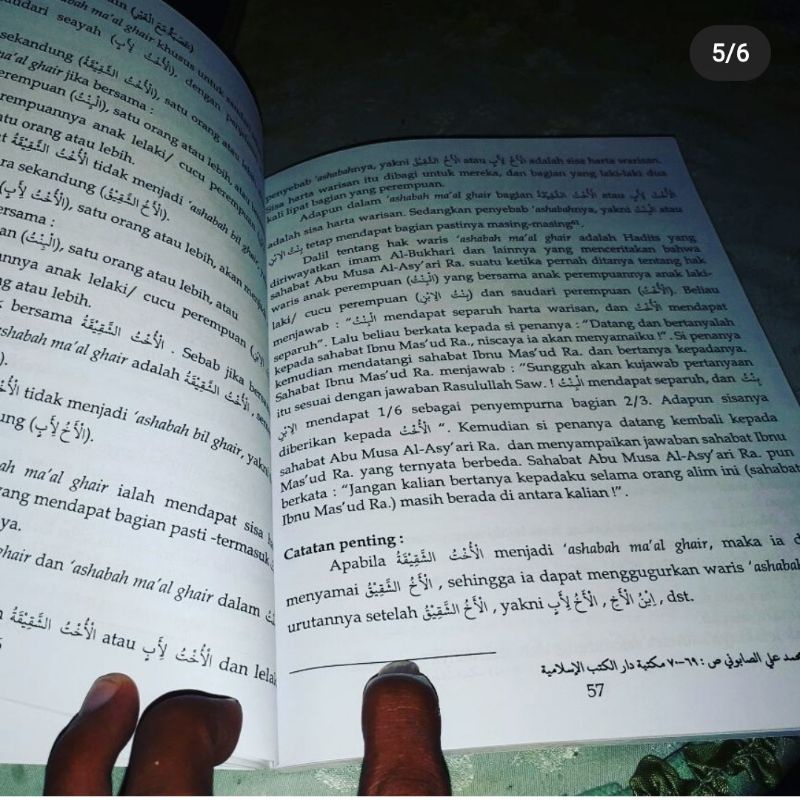 5/6
ma'al ghair khusus untuk
seayah (الْأُخْتُ لِأَبٍ), dengan
sekandung (الْأُخْتُ الشَّقِيْقَةُ), satu orang atau
ma'al ghair jika bersama :
perempuan (الْبِنْتُ), satu orang atau lebih, atau
perempuannya anak lelaki/ cucu perempuan
satu orang atau lebih.
الْأُخْتُ الشَّقِيْقَةُ tidak menjadi 'ashabah bil
sekandung (الْأَخُ الشَّقِيْقُ).
(الْأُخْتُ لِأَبٍ), satu orang atau lebih, akan
bersama :
(الْبِنْتُ), satu orang atau lebih, atau
anak lelaki/ cucu perempuan
atau lebih.
bersama الْأُخْتُ الشَّقِيْقَةُ . Sebab jika
'ashabah ma'al ghair adalah الْأُخْتُ الشَّقِيْقَةُ ,
tidak menjadi 'ashabah bil ghair, yakni
(الْأَخُ لِأَبٍ).
ma'al ghair ialah mendapat sisa
yang mendapat bagian pasti -termasuk
ghair dan 'ashabah ma'al ghair dalam
الْأُخْتُ الشَّقِيْقَةُ atau الْأُخْتُ لِأَبٍ dan
penyebab 'ashabahnya, yakni الْأَخُ الشَّقِيْقُ atau الْأَخُ لِأَبٍ adalah sisa harta warisan.
sisa harta warisan itu dibagi untuk mereka, dan bagian yang laki-laki dua
kali lipat bagian yang perempuan.
Adapun dalam 'ashabah ma'al ghair bagian الْأُخْتُ الشَّقِيْقَةُ atau الْأُخْتُ لِأَبٍ
adalah sisa harta warisan. Sedangkan penyebab 'ashabahnya, yakni الْبِنْتُ atau
بِنْتُ الْاِبْنِ tetap mendapat bagian pastinya masing-masing
Dalil tentang hak waris 'ashabah ma'al ghair adalah Hadits yang
diriwayatkan imam Al-Bukhari dan lainnya yang menceritakan bahwa
sahabat Abu Musa Al-Asy'ari Ra. suatu ketika pernah ditanya tentang hak
waris anak perempuan (الْبِنْتُ) yang bersama anak perempuannya anak laki-
laki/ cucu perempuan (بِنْتُ الْاِبْنِ) dan saudari perempuan (الْأُخْتُ). Beliau
menjawab : "الْبِنْتُ mendapat separuh harta warisan, dan الْأُخْتُ mendapat
separuh". Lalu beliau berkata kepada si penanya : "Datang dan bertanyalah
kepada sahabat Ibnu Mas'ud Ra., niscaya ia akan menyamaiku !" .Si penanya
kemudian mendatangi sahabat Ibnu Mas'ud Ra. dan bertanya kepadanya.
Sahabat Ibnu Mas'ud Ra. menjawab : "Sungguh akan kujawab pertanyaan
itu sesuai dengan jawaban Rasulullah Saw. ! الْبِنْتُ mendapat separuh, dan بِنْتُ
الْاِبْنِ mendapat 1/6 sebagai penyempurna bagian 2/3. Adapun sisanya
diberikan kepada الْأُخْتُ ". Kemudian si penanya datang kembali kepada
sahabat Abu Musa Al-Asy'ari Ra. dan menyampaikan jawaban sahabat Ibnu
Mas'ud Ra. yang ternyata berbeda. Sahabat Abu Musa Al-Asy'ari Ra. pun
berkata : "Jangan kalian bertanya kepadaku selama orang alim ini (sahabat
Ibnu Mas'ud Ra.) masih berada di antara kalian !" .
Catatan penting :
Apabila الْأُخْتُ الشَّقِيْقَةُ menjadi 'ashabah ma'al ghair, maka ia
menyamai الْأَخُ الشَّقِيْقُ , sehingga ia dapat menggugurkan waris 'ashabah
urutannya setelah الْأَخُ الشَّقِيْقُ , yakni الْأَخُ لِأَبٍ , اِبْنُ الْأَخِ , dst.
علي الصابوني ص : ٦٩-٧٠ مكتبة دار الكتب الإسلامية
57